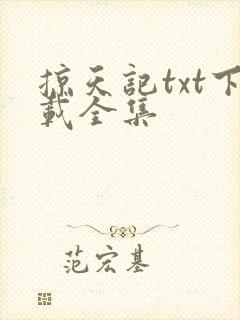 掠天記txt下
載全集
范宏基